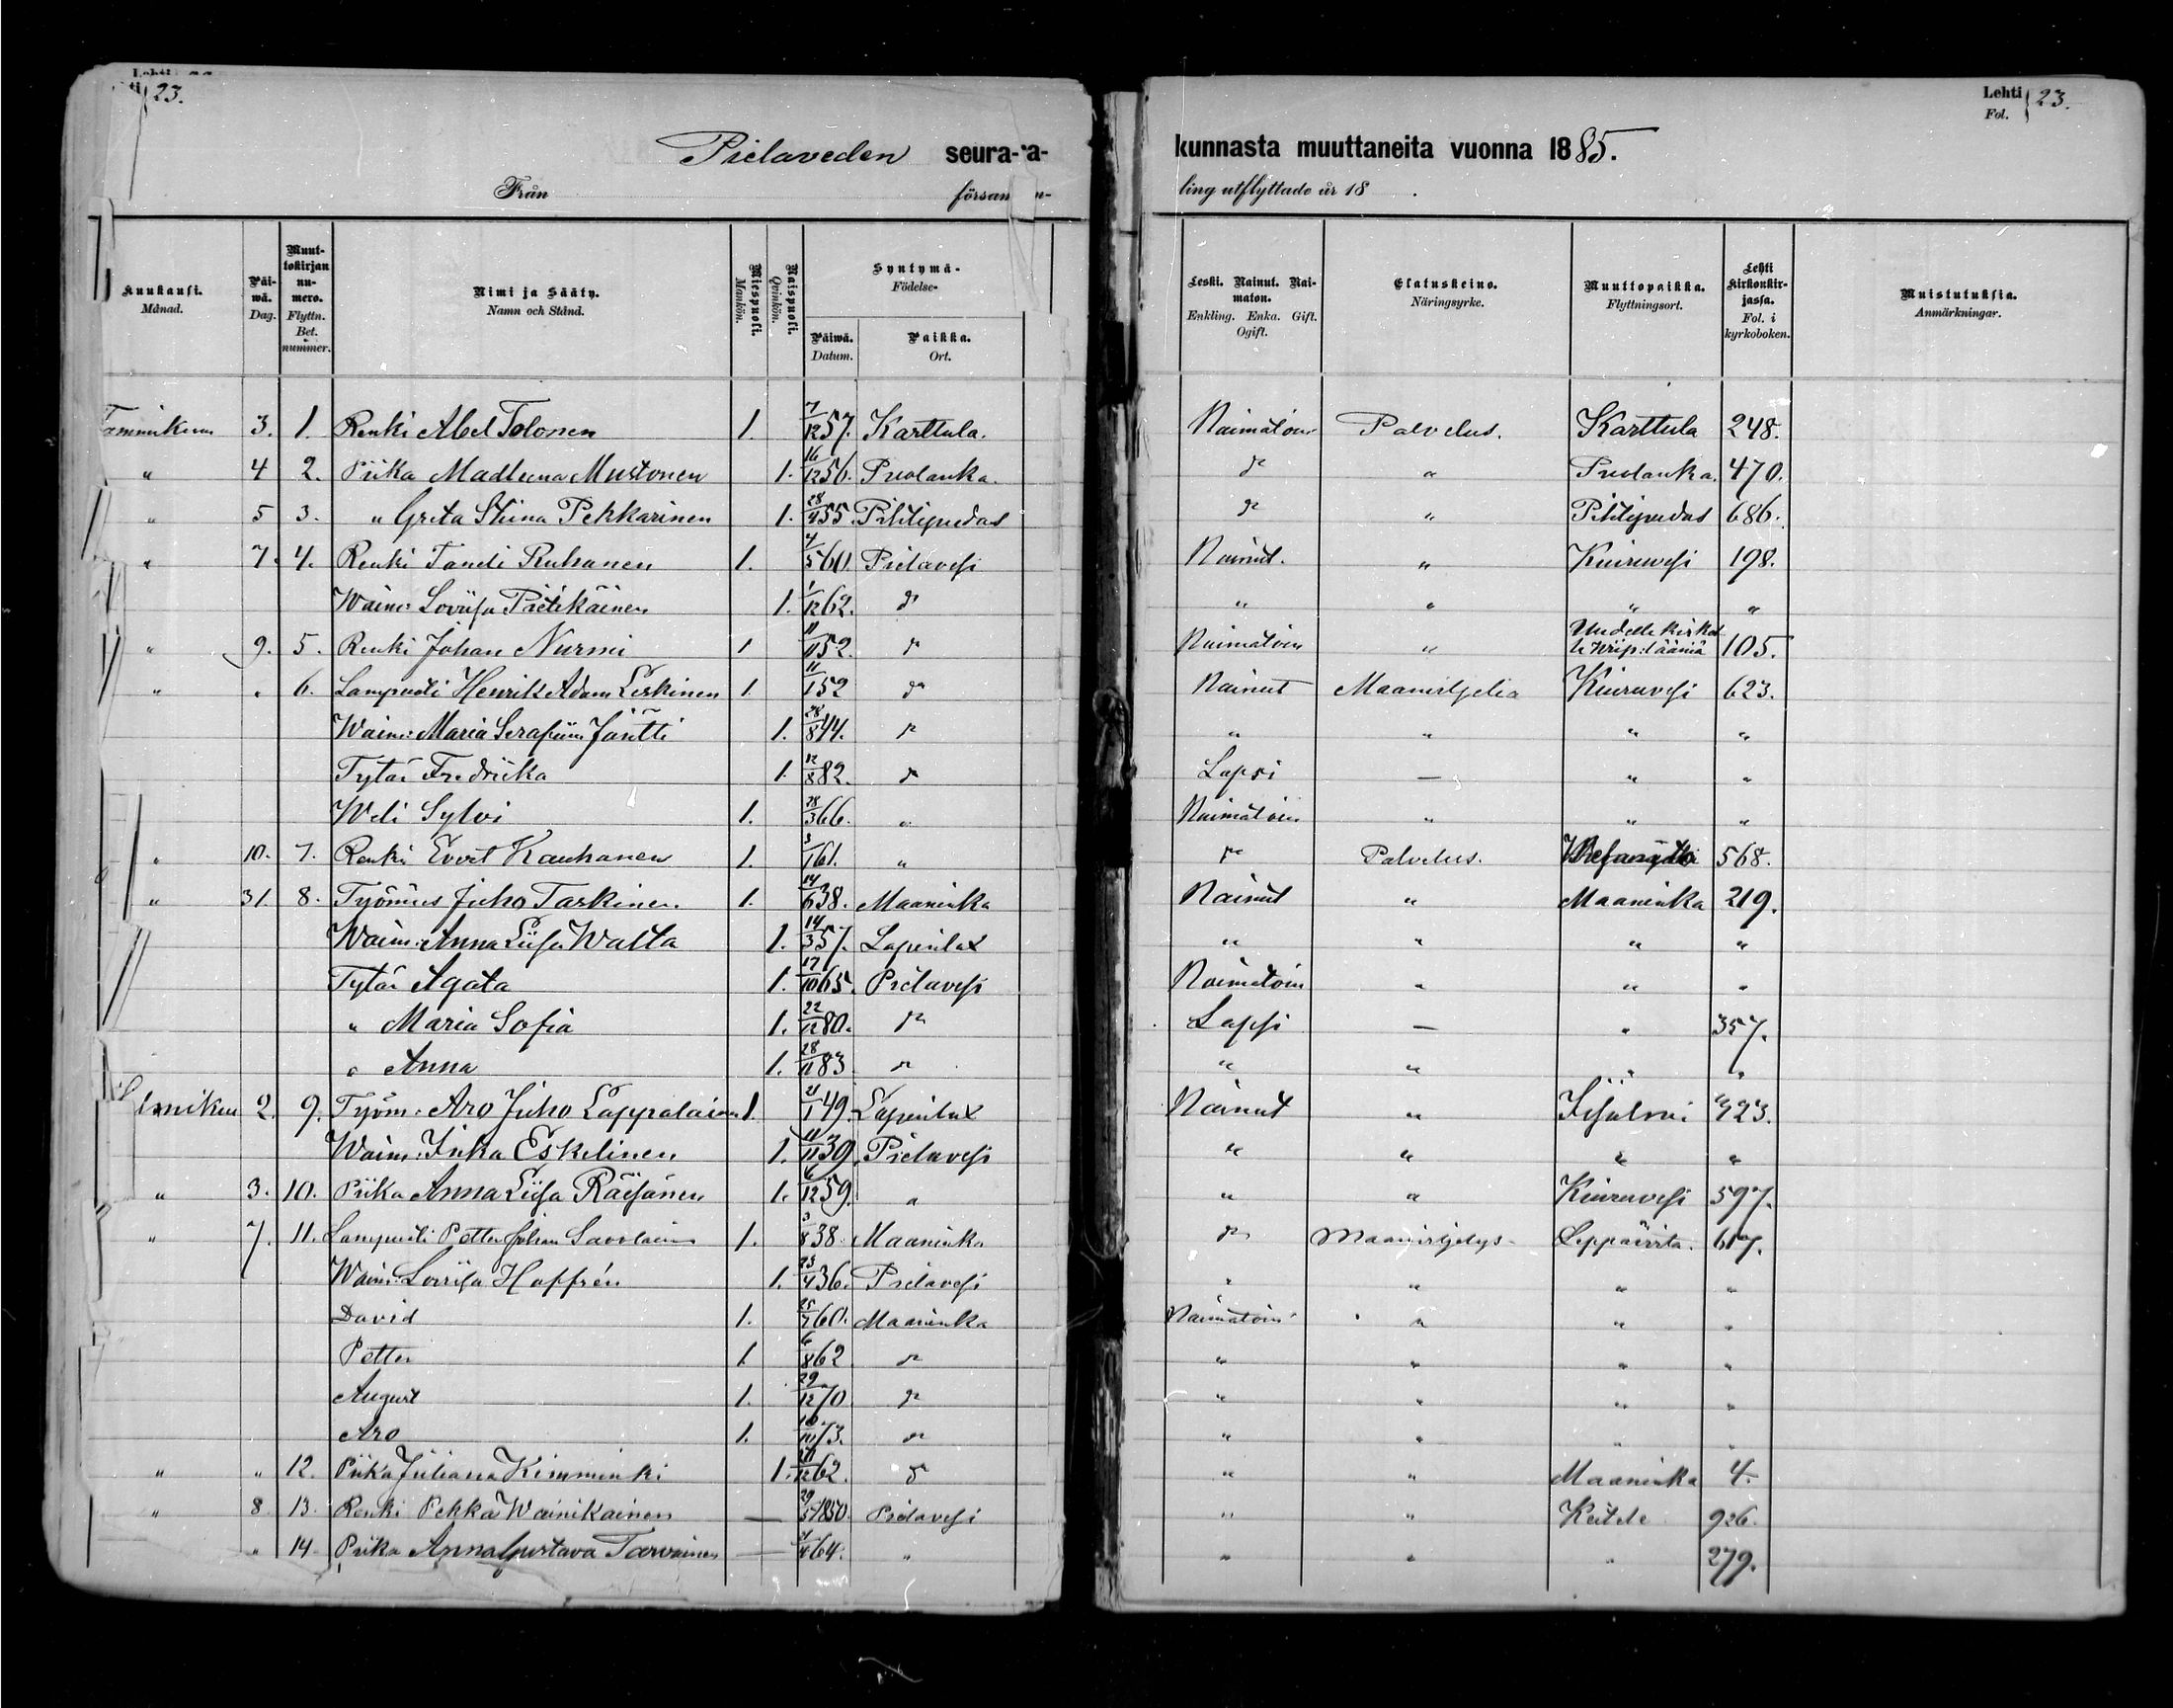 23.
Lehti 23.
Fol.
Pielaveden seura- kunnasta muuttaneita vuonna 1885.
Från försam- ling utflyttade år 18 .
Kuukausi. Månad. Päiwä. Dag. Muuttokirjan numero. Flyttn. Bet. nummer. Nimi ja Sääty. Namn och Stånd. Miespuoli. Mankön. Naispuoli. Qvinkön. Syntymä- Födelse- Päiwä. Datum. Paikka. Ort. Leski. Nainut. Naimaton. Enkling. Enka. Gift. Ogift. Elatuskeino. Näringsyrke. Muuttopaikka. Flyttningsort. Lehti kirkonkirjassa. Fol. i kyrkoboken. Muistutuksia. Anmärkningar.
Tammikuu 3. 1. Renki Abel Tolonen 1. 7/12 57. Karttula. Naimatoin Palvelus. Karttula 248.
" 4 2. Piika Madleena Mustonen 1. 16/12 56. Puolanka. do " Puolanka. 470.
" 5 3. " Greta Stiina Pekkarinen 1. 28/4 55. Pihtipudas do " Pihtipudas 686.
" 7. 4. Renki Taneli Ruhanen 1. 4/5 60 Pielavesi Nainut. " Kiuruwesi 198.
Waim: Loviisa Pietikäinen 1. 1/12 62. do " " " "
" 9. 5. Renki Johan Nurmi 1 11/11 52. do Naimatoin " Uudelle kirkol le Wiip: lääniä 105.
" " 6. Lampuoti Henrik Adam Leskinen 1. 11/1 52 do Nainut Maanviljelia Kiuruvesi 623.
Waim: Maria Serafiina Jäntti 1. 28/8 44. do " " " "
Tytär Fredriika 1. 12/8 82. do Lapsi — " "
Weli Sylvi 1. 28/3 66. " Naimatoin " " "
" 10. 7. Renki Evert Kauhanen 1. 3/1 61. " do Palvelus. 568.
" 31. 8. Työmies Juho Tarkinen. 1. 14/6 38. Maaninka Nainut " Maaninka 219.
Waim: Anna Liisa Walta 1. 14/3 57. Lapinlax " " " "
Tytär Agata 1. 17/10 65. Pielavesi Naimatoin " " "
" Maria Sofia 1. 22/12 80. do Lapsi — " 357.
" Anna 1. 28/11 83 do " " " "
Helmikuu 2. 9. Työm: Aro Juho Lappalainen 1. 21/1 49. Lapinlax Nainut " Iisalmi 423.
Waim: Inka Eskelinen 1. 11/11 39. Pielavesi " " " "
" 3. 10. Piika Anna Liisa Räisänen 1. 6/12 59. " " " Kiuruvesi 597.
" 7. 11. Lampuoti Petter Johan Savolainen 1. 3/8 38. Maaninka do Maanviljelys Leppävirta. 617.
Waim: Loviisa Hoffrén 1. 23/4 36. Pielavesi " " " "
David 1. 25/7 60. Maaninka Naimatoin " " "
Petter 1. 6/8 62 do " " " "
August 1. 29/12 70 do " " " "
Aro 1. 10/10 73. do " " " "
" " 12. Piika Juliana Kimminki 1. 21/12 62. do " " Maaninka 4.
" 8. 13. Renki Pekka Wainikainen — 29/5 1850. Pielavesi " " Keitele 926.
" 14. Piika Anna Gustava Tarvainen — 21/4 64. " " " " 279.